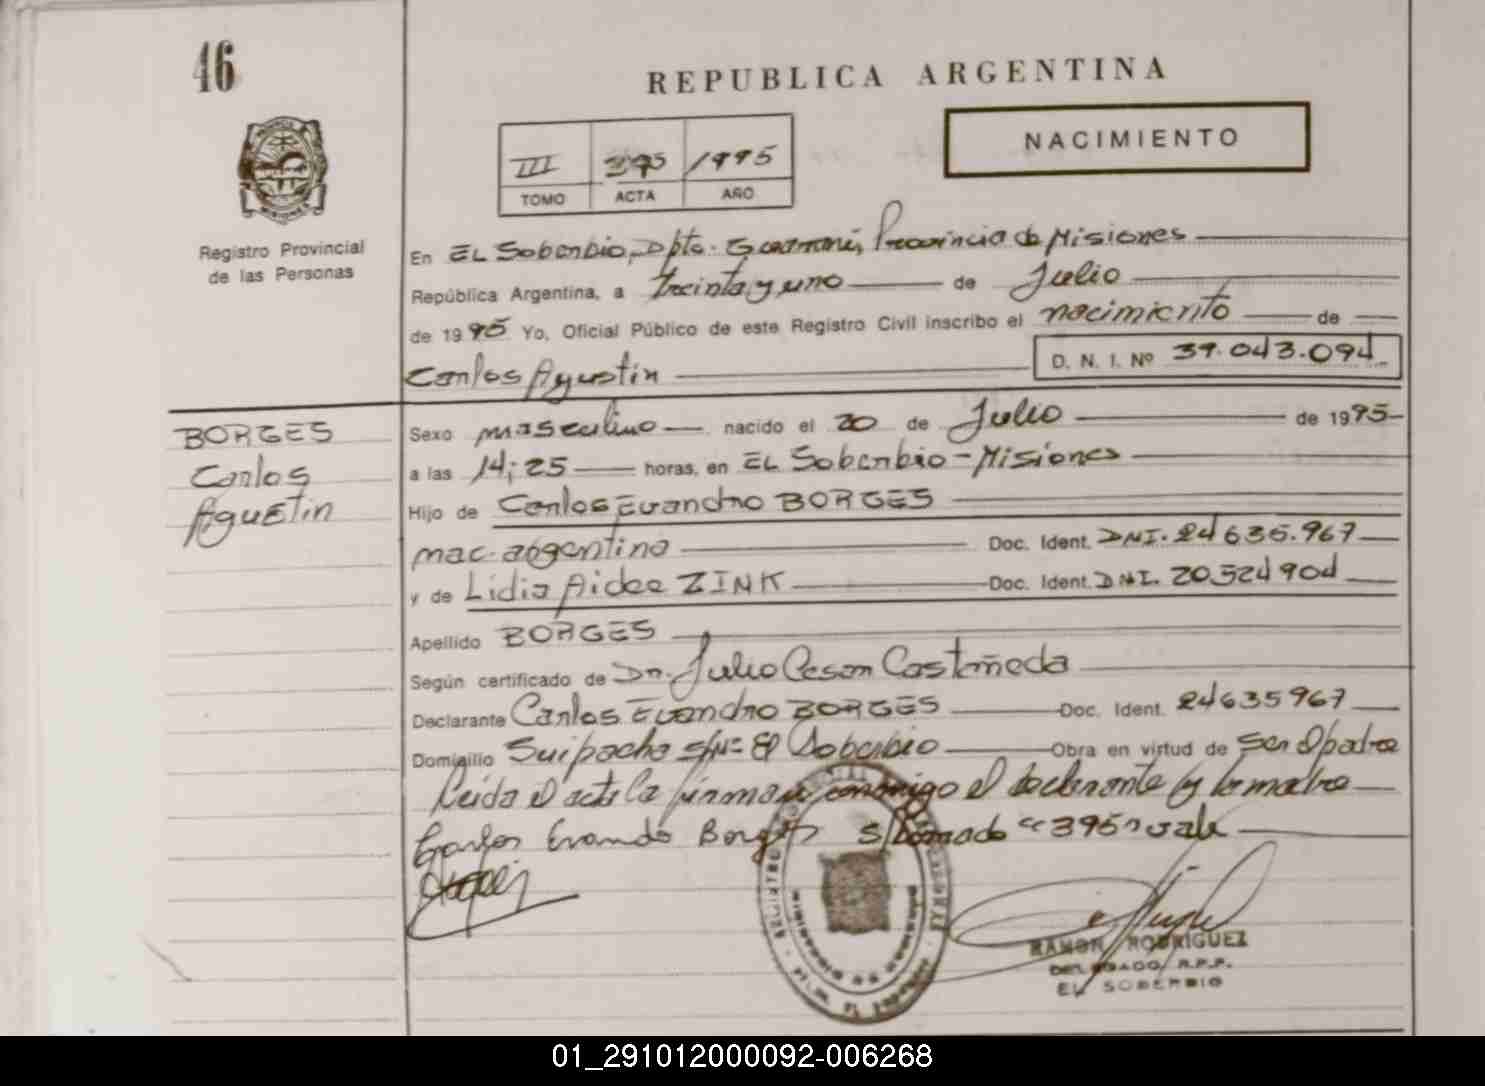 46
REPUBLICA ARGENTINA
NACIMIENTO
III 395 1995
TOMO ACTA AÑO
PROVINCIA DE MISIONES
Registro Provincial
de las Personas
En EL Soberbio, Dpto. Guaraní, Provincia de Misiones
República Argentina, a treinta y uno de Julio
de 1995 Yo, Oficial Público de este Registro Civil inscribo el nacimiento de
Carlos Agustín D. N. I. Nº 39.043.094
BORGES
Carlos
Agustin
Sexo masculino nacido el 20 de Julio de 1995
a las 14;25 horas, en EL Soberbio - Misiones
Hijo de Carlos Evandro BORGES
nac. argentina Doc. Ident. DNI. 24 635.967
y de Lidia Aidee ZINK Doc. Ident. DNI. 20524904
Apellido BORGES
Según certificado de Dr. Julio Cesar Castañeda
Declarante Carlos Evandro BORGES Doc. Ident. 24635967
Domicilio Suipacha S/Nº El Soberbio Obra en virtud de ser el padre
Leida el acta la firman conmigo el declarante y la madre
Carlos Evando Borges S/ "395" vale
RAMON RODRIGUEZ
DELEGADO R.P.P.
EL SOBERBIO
01_291012000092-006268